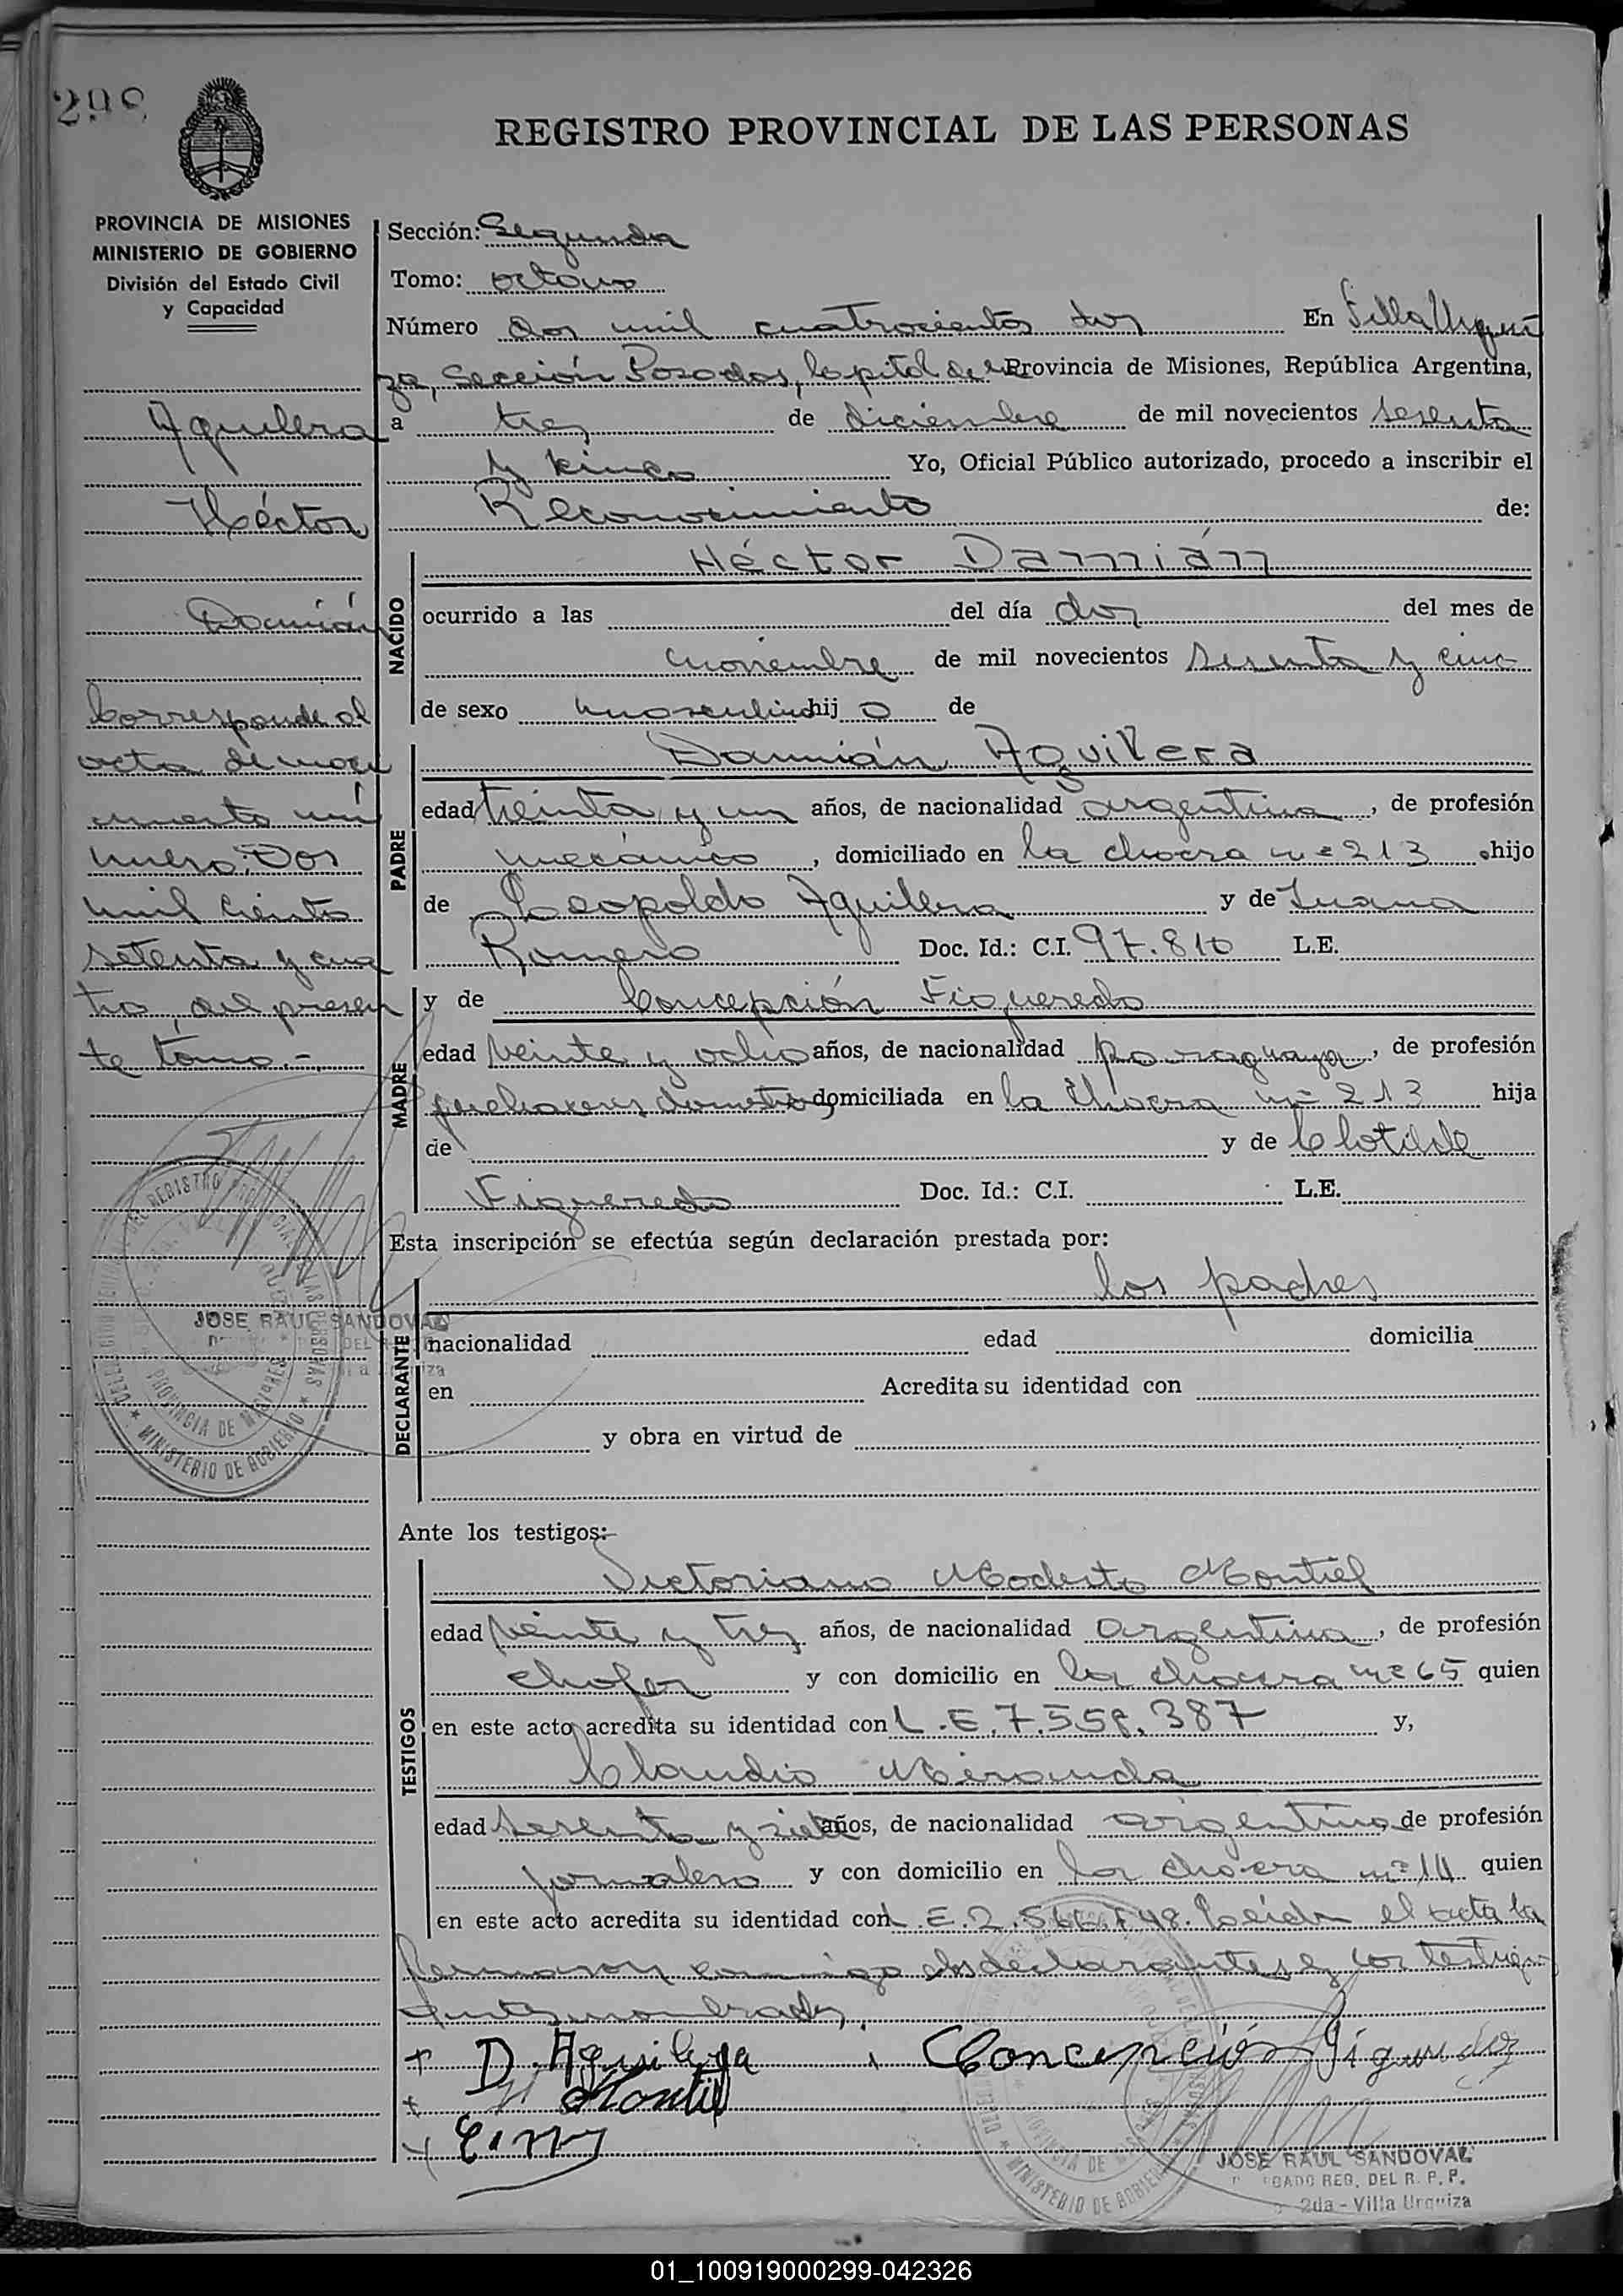 298
REGISTRO PROVINCIAL DE LAS PERSONAS
PROVINCIA DE MISIONES
MINISTERIO DE GOBIERNO
División del Estado Civil
y Capacidad
Aguilera
Héctor
Damián
Corresponde al
acta de naci
miento nú
mero: Dos
mil ciento
setenta y cua
tro, del presen
te tomo.-
Sección: Segunda
Tomo: octavo
Número dos mil cuatrocientos dos En Villa Urqui
za, Sección Posadas, Capital de la Provincia de Misiones, República Argentina,
a tres de diciembre de mil novecientos sesenta
y kinco Yo, Oficial Público autorizado, procedo a inscribir el
Reconocimiento de:
NACIDO
Héctor Damián
ocurrido a las del día dos del mes de
noviembre de mil novecientos sesenta y cinco
de sexo masculino hij o de
PADRE
Damián Aguilera
edad treinta y un años, de nacionalidad argentina, de profesión
mecánico, domiciliado en la chacra nº 213 hijo
de Leopoldo Aguilera y de Juana
Romero Doc. Id.: C.I. 97.810 L.E.
MADRE
y de Concepción Figueredo
edad veinte y ocho años, de nacionalidad paraguaya, de profesión
quehaceres domiciliada en la chacra nº 213 hija
de y de Clotilde
Figueredo Doc. Id.: C.I. L.E.
Esta inscripción se efectúa según declaración prestada por:
DECLARANTE
los padres
nacionalidad edad domicilia
en Acredita su identidad con
y obra en virtud de
JOSE RAUL SANDOVAL
PROVINCIA DE MISIONES
MINISTERIO DE GOBIERNO
Ante los testigos:
TESTIGOS
Victoriano Modesto Montiel
edad veinte y tres años, de nacionalidad argentina, de profesión
chofer y con domicilio en la chacra nº 65 quien
en este acto acredita su identidad con L.E. 7.558.387 y,
Claudio Miranda
edad sesenta y siete años, de nacionalidad argentino de profesión
jornalero y con domicilio en la chacra nº quien
en este acto acredita su identidad con L.E. Leída el acta la
firmaron conmigo los declarantes y los testigos
antes nombrados.
D. Aguilera Concepción Figueredo
Montiel
JOSE RAUL SANDOVAL
REG. DEL R. P. P.
2da - Villa Urquiza
MINISTERIO DE GOBIERNO
01_100919000299-042326